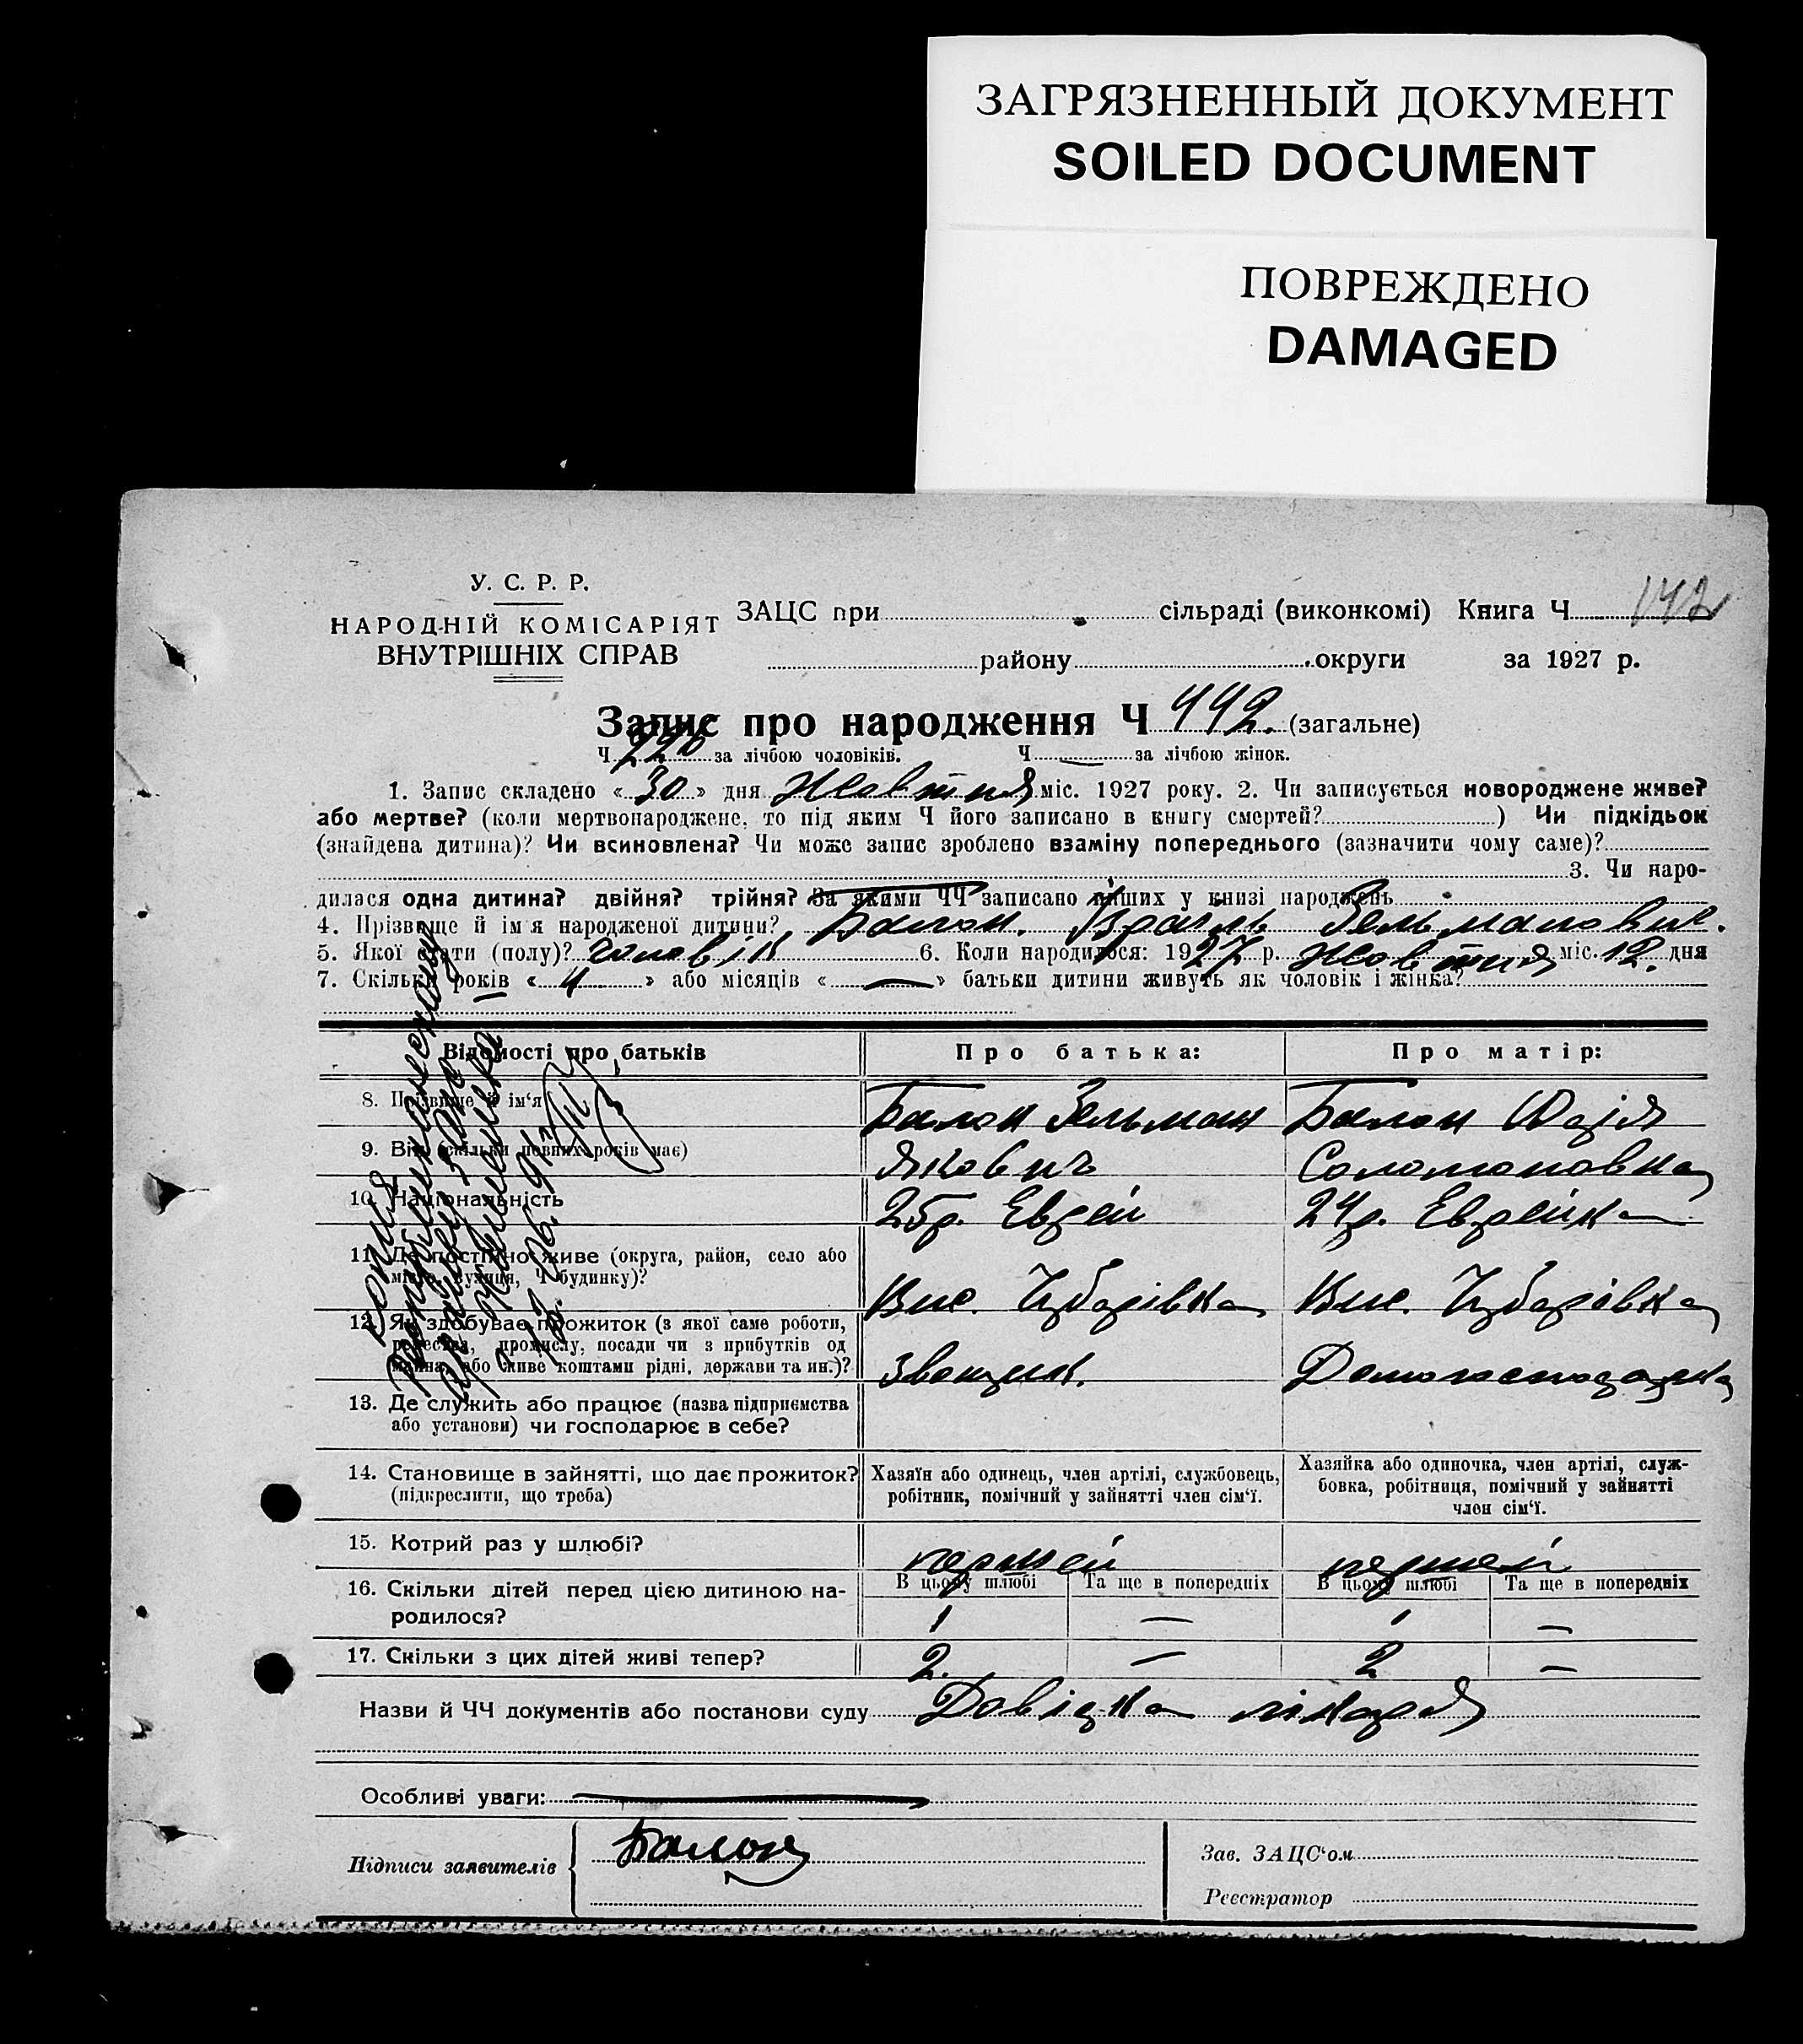 ЗАГРЯЗНЕННЫЙ ДОКУМЕНТ
SOILED DOCUMENT
ПОВРЕЖДЕНО
DAMAGED
У. С. Р. Р.
НАРОДНІЙ КОМІСАРІЯТ
ВНУТРІШНІХ СПРАВ
ЗАЦС при сільраді (виконкомі) Книга Ч 142
району округи за 1927 р.
Запис про народження Ч 442. (загальне)
Ч 220 за лічбою чоловіків. Ч — за лічбою жінок.
1. Запис складено « 30 » дня Жовтня міс. 1927 року. 2. Чи записується новороджене живе?
або мертве? (коли мертвонароджене, то під яким Ч його записано в книгу смертей? ) Чи підкідьок
(знайдена дитина)? Чи всиновлена? Чи може запис зроблено взаміну попереднього (зазначити чому саме)?
3. Чи наро-
дилася одна дитина? двійня? трійня? За якими ЧЧ записано інших у книзі народжень
4. Прізвище й ім'я народженої дитини? Балон. Ізраїль Зельманович.
5. Якої стати (полу)? чоловік 6. Коли народилося: 1927 р. Жовтня міс. 12. дня
7. Скільки років « 4 » або місяців « — » батьки дитини живуть як чоловік і жінка?
Відомості про батьків Про батька: Про матір:
8. Прізвище й ім'я Балон Зельман Балон
9. Вік (скільки повних років має) Якович Соломоновна
10. Національність 25р. Еврей 24р. Еврейка
11. Де постійно живе (округа, район, село або
місто, вулиця, Ч будинку)?
12. Як здобуває прожиток (з якої саме роботи,
ремества, промислу, посади чи з прибутків од
майна, або живе коштами рідні, держави та ин.)? Домогосподарка
13. Де служить або працює (назва підприємства
або установи) чи господарює в себе?
14. Становище в зайнятті, що дає прожиток?
(підкреслити, що треба)
Хазяїн або одинець, член артілі, службовець,
робітник, помічний у зайнятті член сім'ї.
Хазяйка або одиночка, член артілі, служ-
бовка, робітниця, помічний у зайнятті
член сім'ї.
15. Котрий раз у шлюбі? першей першей
16. Скільки дітей перед цією дитиною на-
родилося?
В цьому шлюбі Та ще в попередніх В цьому шлюбі Та ще в попередніх
1 — 1 —
17. Скільки з цих дітей живі тепер? 2. — 2 —
Назви й ЧЧ документів або постанови суду Довідка лікаря
Особливі уваги:
Підписи заявителів Балон
Зав. ЗАЦС'ом
Реєстратор